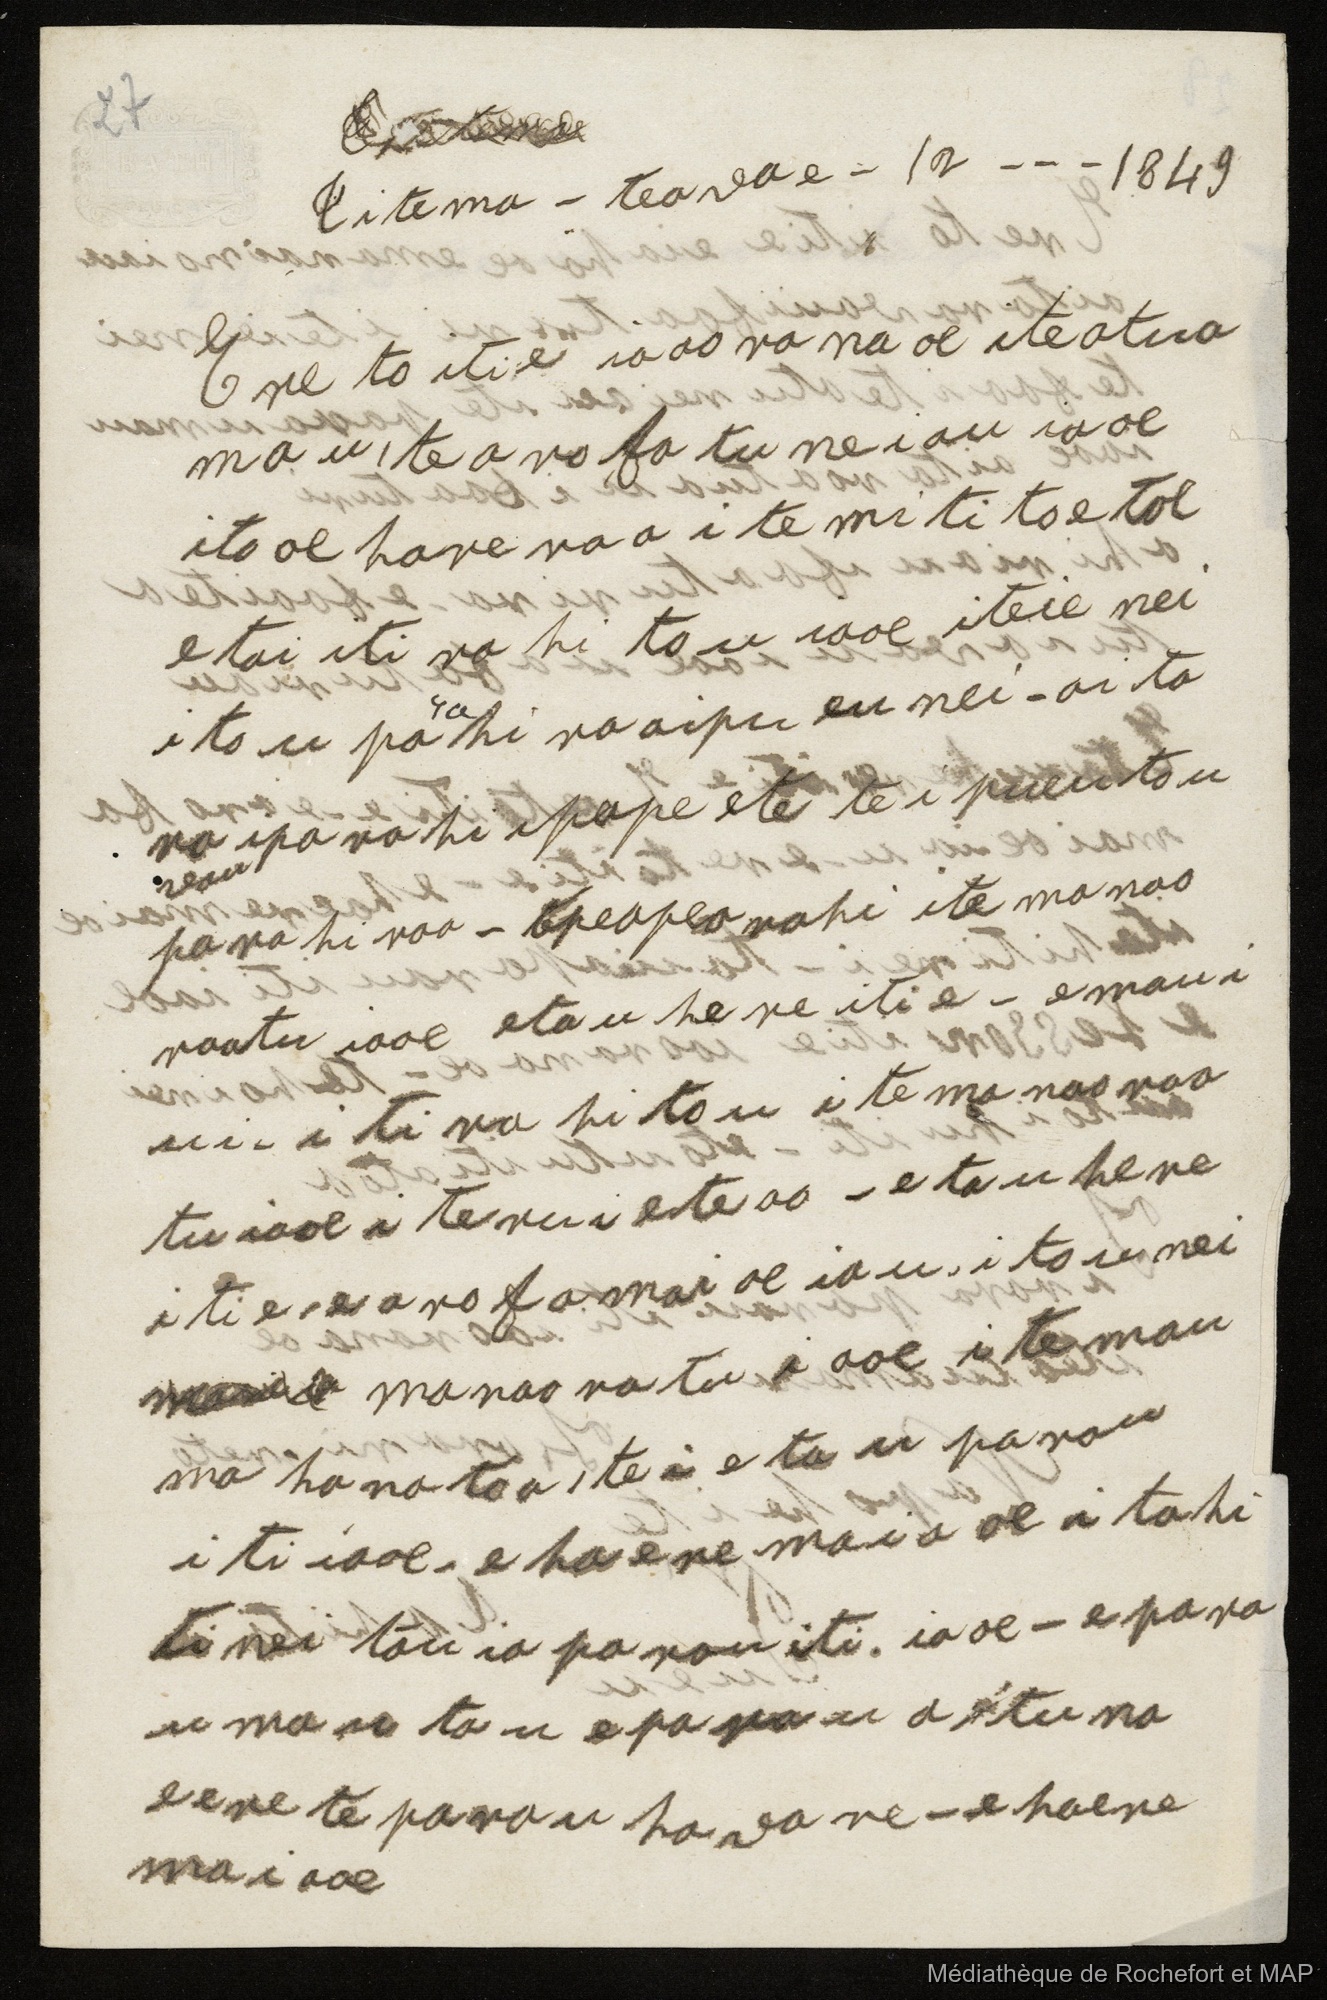 27
Titema - teavae - 12 --- 1849
Ere to iti e iaoo ra na oe ite atua
mau, te aro fa tu ne i au iaoe
ito oe hare raa i te mi ti to e toe
e tai iti ra hi to u iaoe iteie nei
i to u pa ra hi raaipu eu nei - ai ta
ra ipa ra hi i pape ete te i pueu to u
reau
pa ra hi raa - tpeapea rahi ite ma nao
raatu iaoe eta u he re iti e - e mau i
ui. i ti ra hi to u i te ma nao raa
tu iaoe i te ru i e te ao - e ta u he re
i ti e. e aro fa mai oe ia u. i to u nei
ma nao ra tu i aoe i te mau
ma ha na toa, te i e ta u pa ra u
i ti iaoe. e ha e re mai a oe i ta hi
ti nei tau ia pa ra u iti. iaoe - e pa ra
u ma u ta u e pa ra u a i tu na
e e re te pa ra u ha va re - e hae re
ma i aoe
Médiathèque de Rochefort et MAP